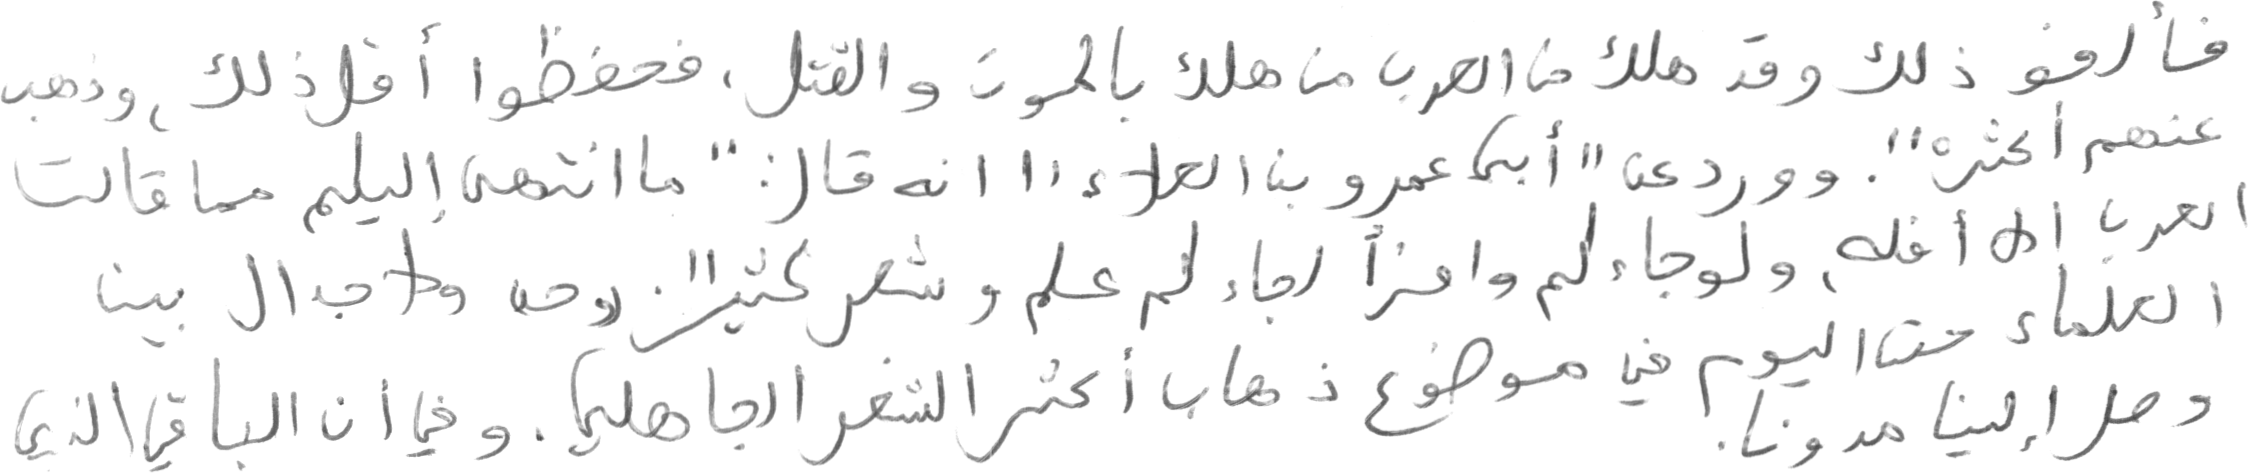 فألفو ذلك وقد هلك من العرب من هلك بالموت والقتل، فحفظوا أقل ذلك، وذهب
عنهم أكثره". وورد عن "أبي عمرو بن العلاء" انه قال: "ما انتهى إليكم مما قالت
العرب إلا أقله، ولو جاءكم وافراً لجاءكم علم وشعر كثير". ولا جدال بين
العلماء حتى اليوم في موضوع ذهاب أكثر الشعر الجاهلي. وفي أن الباقي الذي
وصل إلينا مدونا.